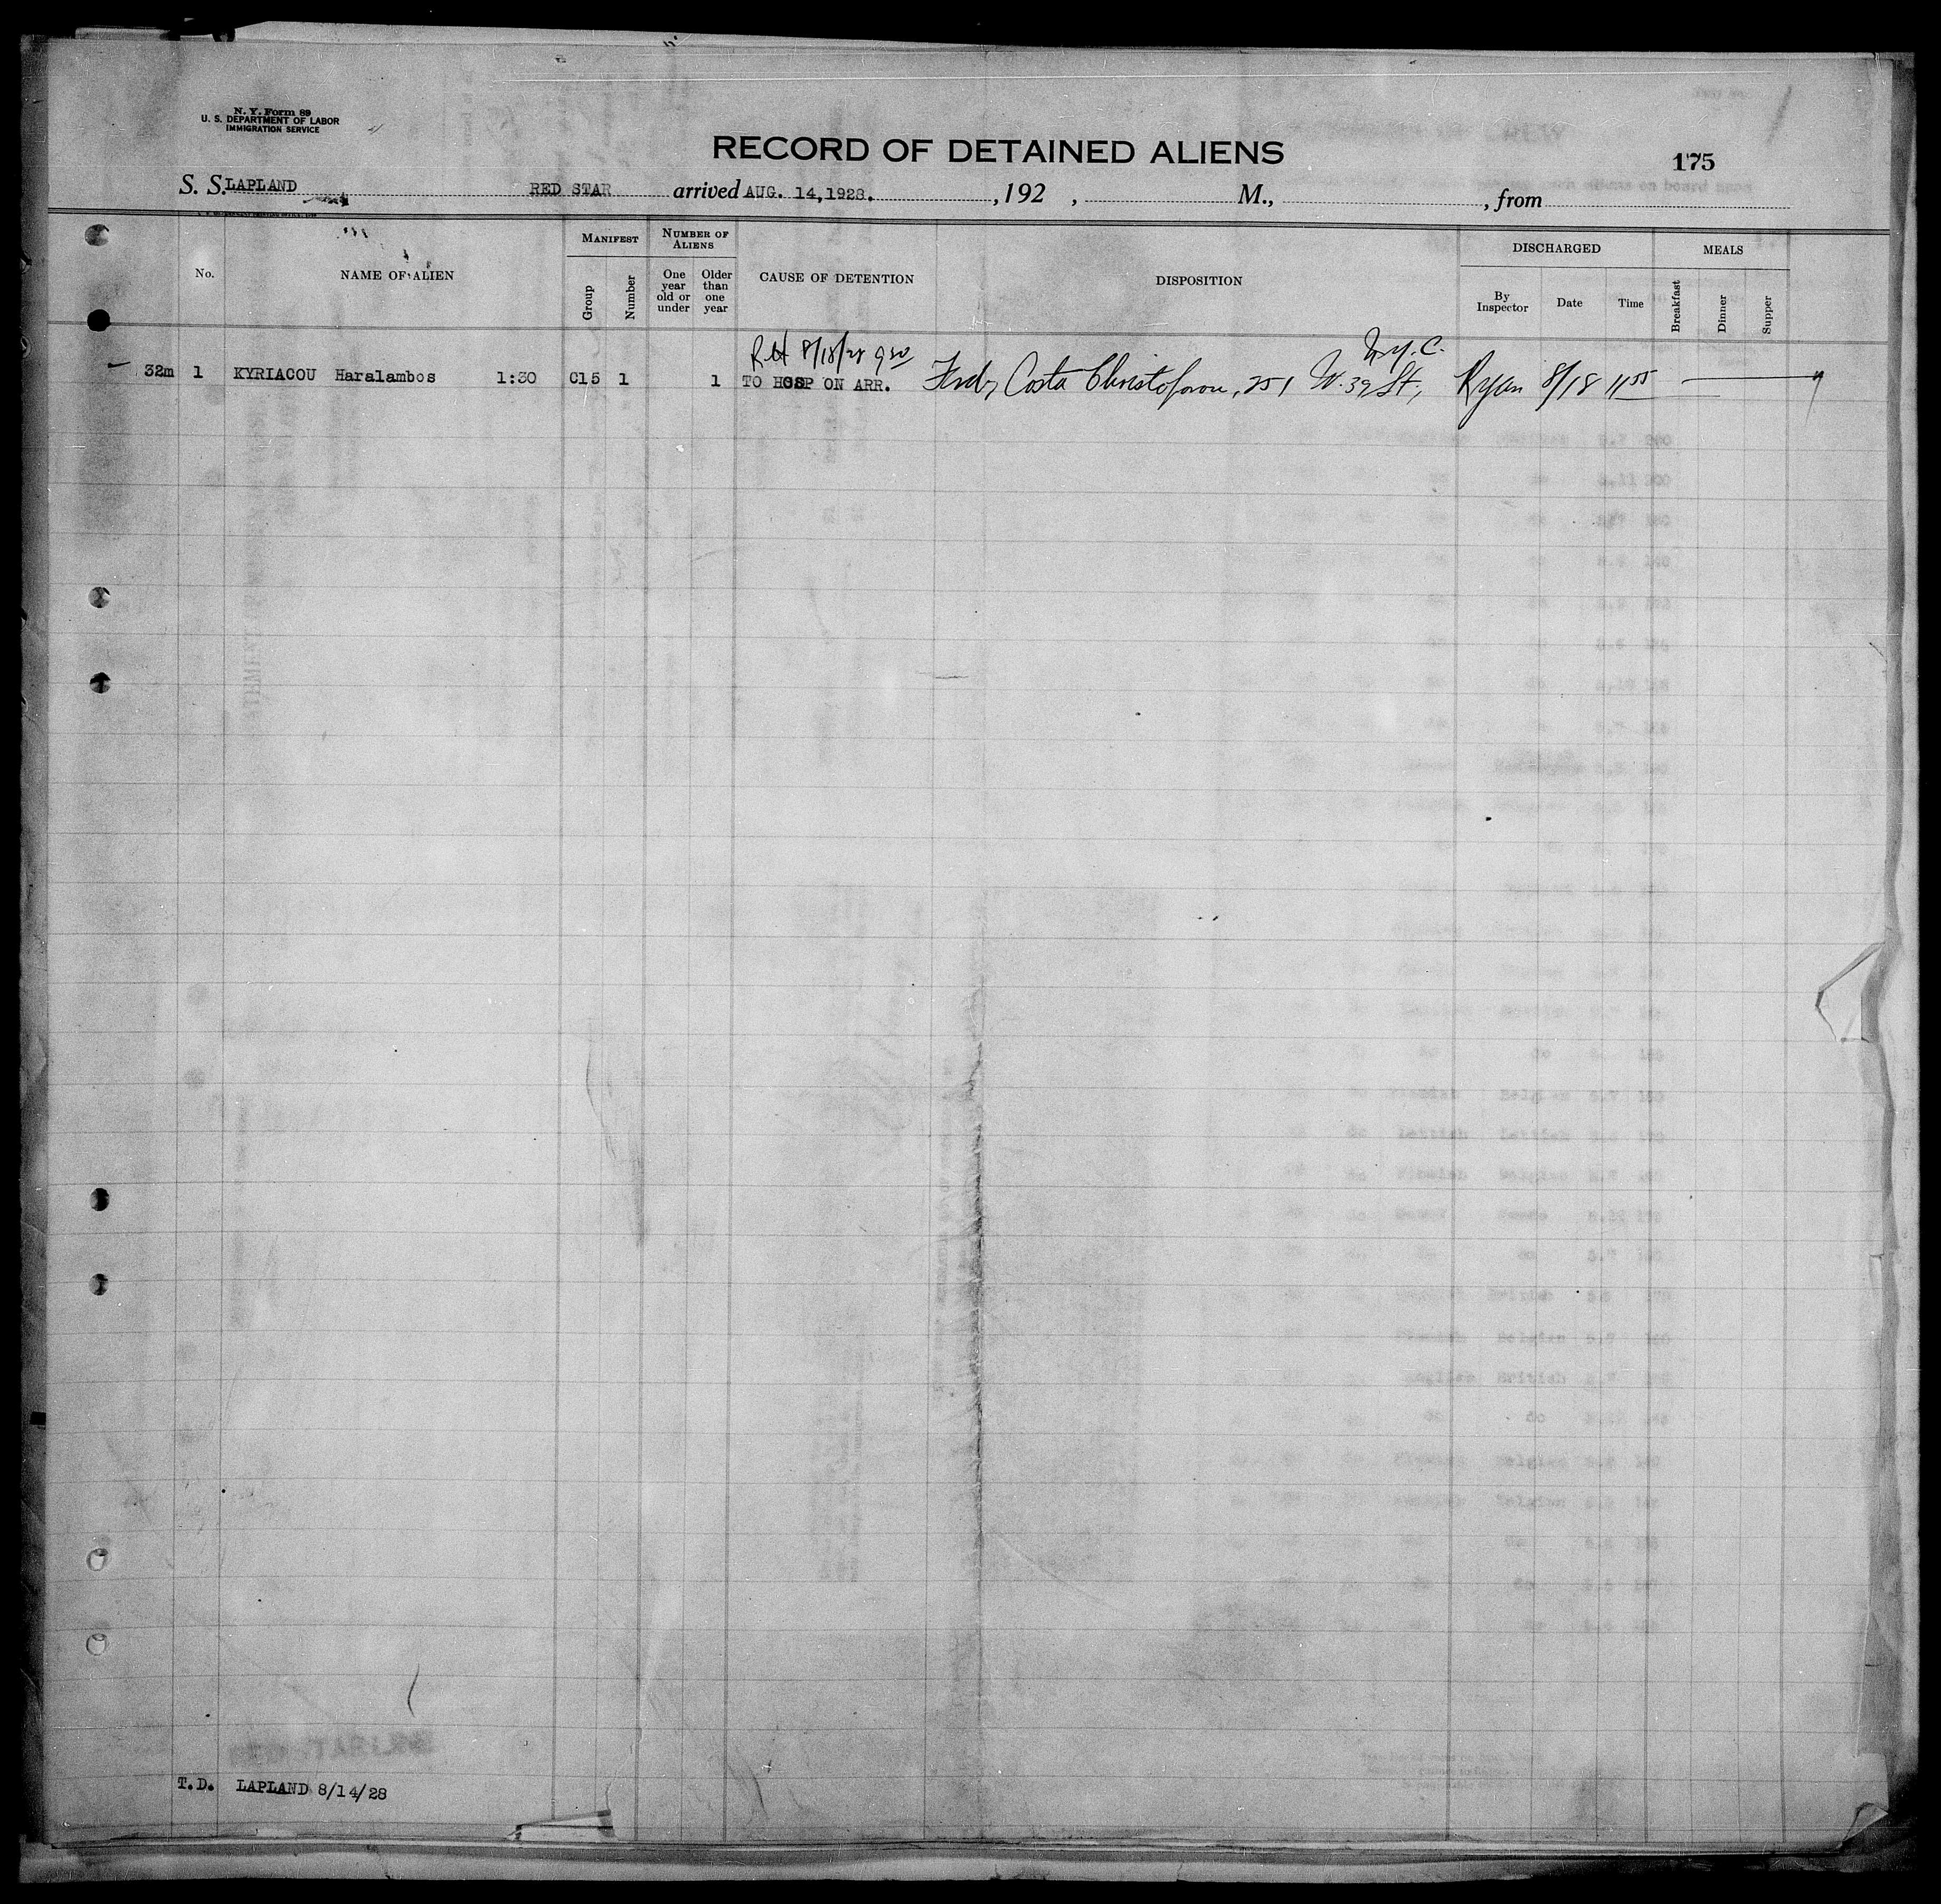 N. Y. Form 89
U. S. DEPARTMENT OF LABOR
IMMIGRATION SERVICE
RECORD OF DETAINED ALIENS
175
S. S. LAPLAND RED STAR arrived AUG. 14,1928. , 192 , M., , from
No.
NAME OF ALIEN
MANIFEST
Group
Number
NUMBER OF ALIENS
One year old or under
Older than one year
CAUSE OF DETENTION
DISPOSITION
DISCHARGED
By Inspector
Date
Time
MEALS
Breakfast
Dinner
Supper
RH 8/18/28 9 30
N.Y.C.
32m 1 KYRIACOU Haralambos 1:30 C15 1 1 TO HOSP ON ARR. Costa Christoforou, 251 W. 39 St., Ryan 8/18 11 55
T.D. LAPLAND 8/14/28